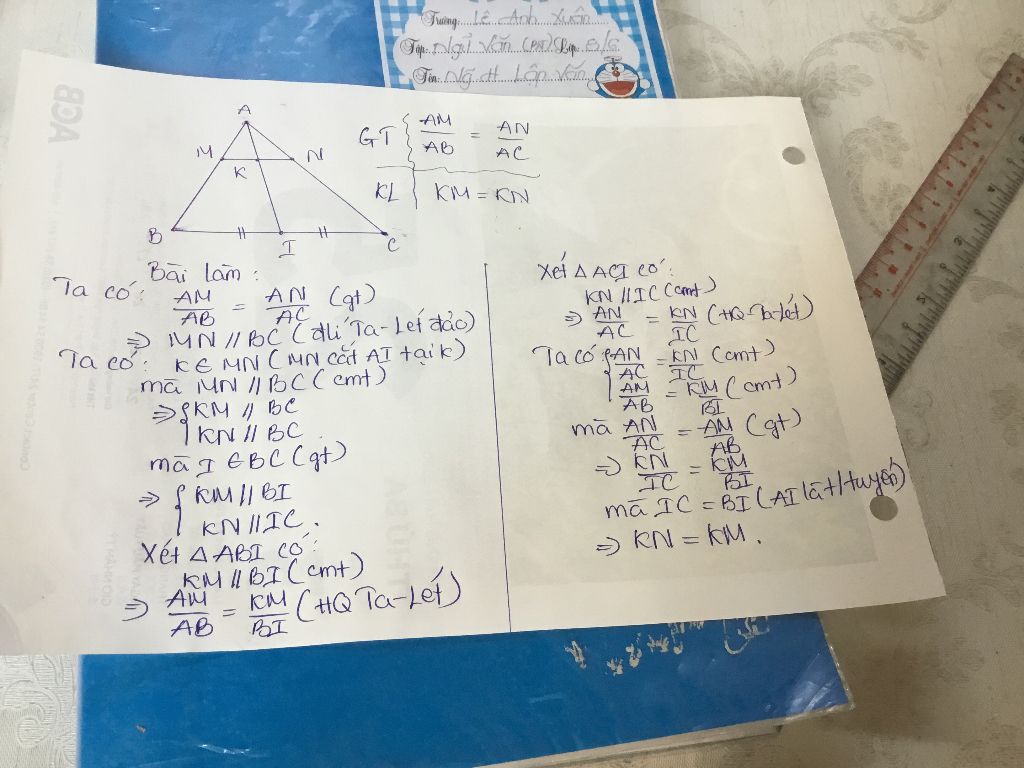 Trường: Lê Anh Xuân
Tập: Ngữ Văn (PHT) Lớp: 8/6
Tên: Ng H Lập Văn
ACB
A
M
N
K
B
I
C
GT { AM/AB = AN/AC
KL { KM = KN
Bài làm:
Ta có: AM/AB = AN/AC (gt)
⇒ MN // BC (đlí Ta-Lét đảo)
Ta có: K ∈ MN (MN cắt AI tại K)
mà MN // BC (cmt)
⇒ { KM // BC
KN // BC.
mà I ∈ BC (gt)
⇒ { KM // BI
KN // IC.
Xét △ ABI có:
KM // BI (cmt)
⇒ AM/AB = KM/BI (HQ Ta-Lét)
Xét △ ACI có:
KN // IC (cmt)
⇒ AN/AC = KN/IC (HQ Ta-lét)
Ta có { AN/AC = KN/IC (cmt)
AM/AB = KM/BI (cmt)
mà AN/AC = AM/AB (gt)
⇒ KN/IC = KM/BI
mà IC = BI (AI là t/tuyến)
⇒ KN = KM.